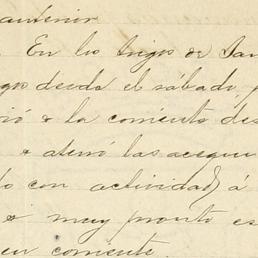 anterior
. En los trigos de San
gos desde el sábado p
rió & la corriente des
& aterró las acequi
do con actividad á
& muy pronto es
en corriente.